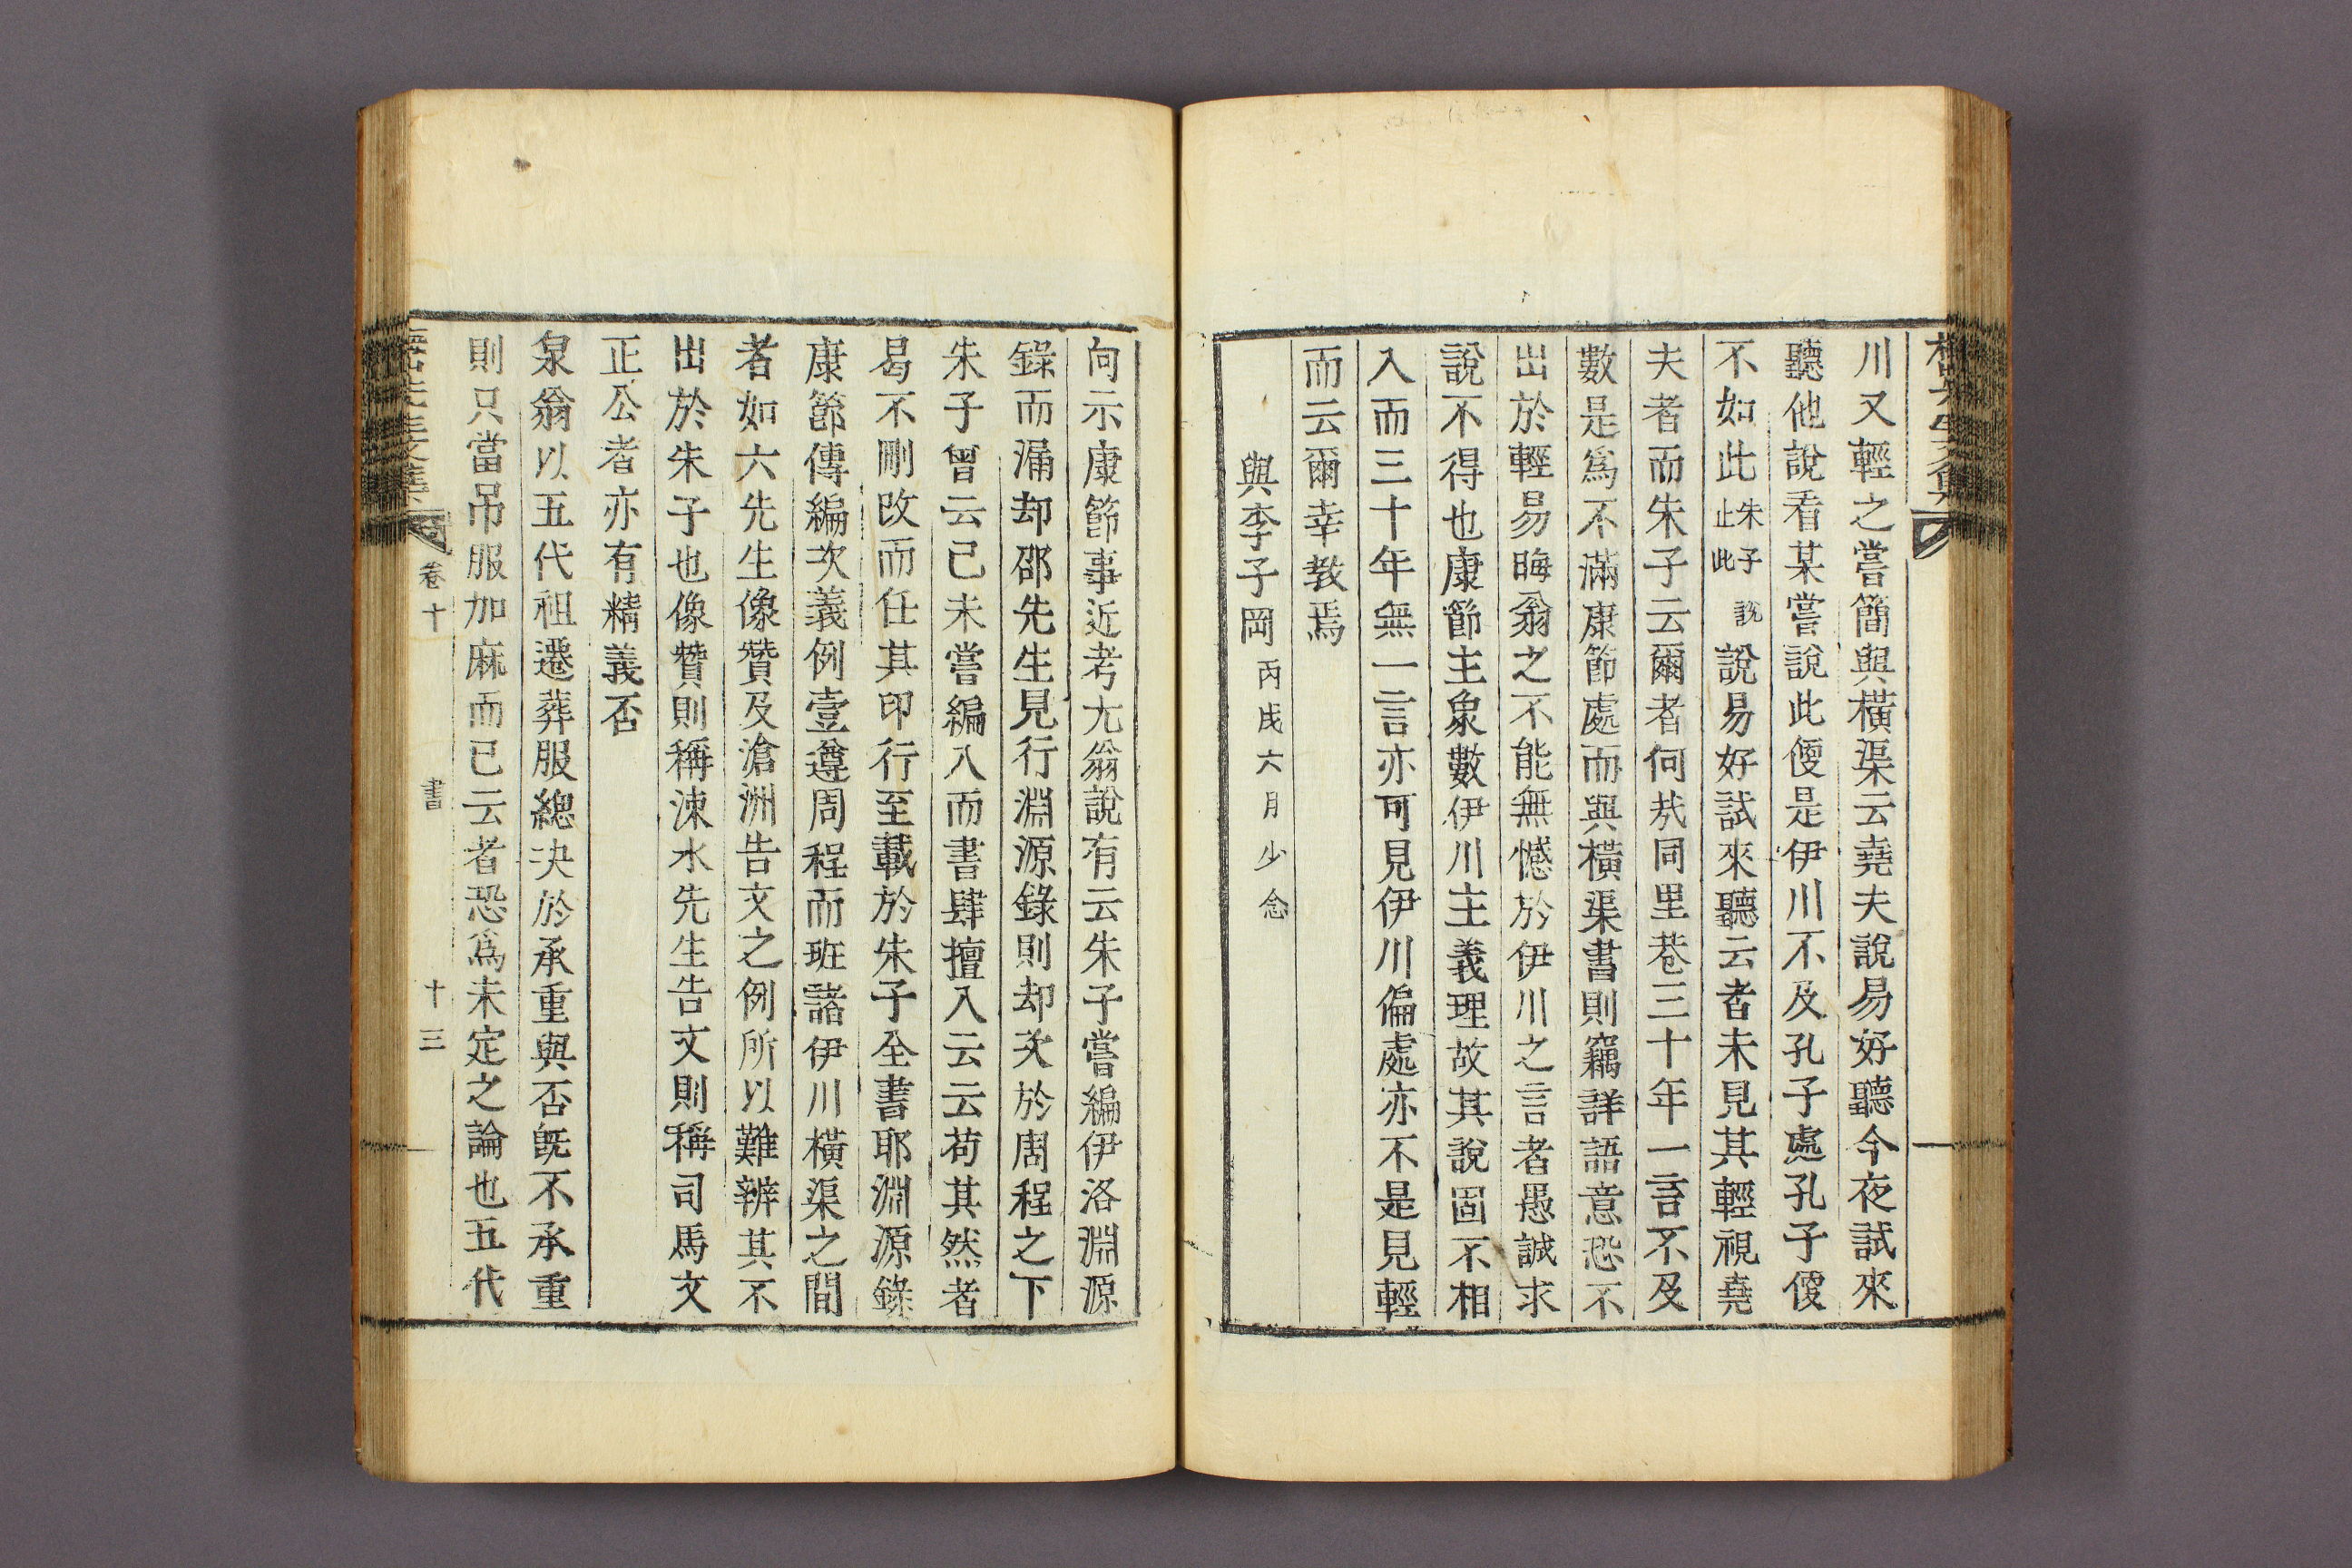 川又輕之嘗簡與橫渠云堯夫說易好聽今夜試來
聽他說看某嘗說此便是伊川不及孔子處孔子便
不如此朱子說止此說易好試來聽云者未見其輕視堯
夫者而朱子云爾者何㢤同里巷三十年一言不及
數是爲不滿康節處而與橫渠書則竊詳語意恐不
出於輕易晦翁之不能無憾於伊川之言者愚誠求
說不得也康節主象數伊川主義理故其說固不相
入而三十年無一言亦可見伊川偏處亦不是見輕
而云爾幸教焉
與李子岡丙戌六月少念
向示康節事近考尤翁說有云朱子嘗編伊洛淵源
錄而漏却邵先生見行淵源錄則却次於周程之下
朱子曾云已未嘗編入而書肆擅入云云苟其然者
曷不刪改而任其印行至載於朱子全書耶淵源錄
康節傳編次義例壹遵周程而班諸伊川橫渠之間
者如六先生像贊及滄洲告文之例所以難辨其不
出於朱子也像贊則稱涑水先生告文則稱司馬文
正公者亦有精義否
泉翁以五代祖遷葬服總決於承重與否旣不承重
則只當吊服加麻而已云者恐爲未定之論也五代
卷十
書
十三